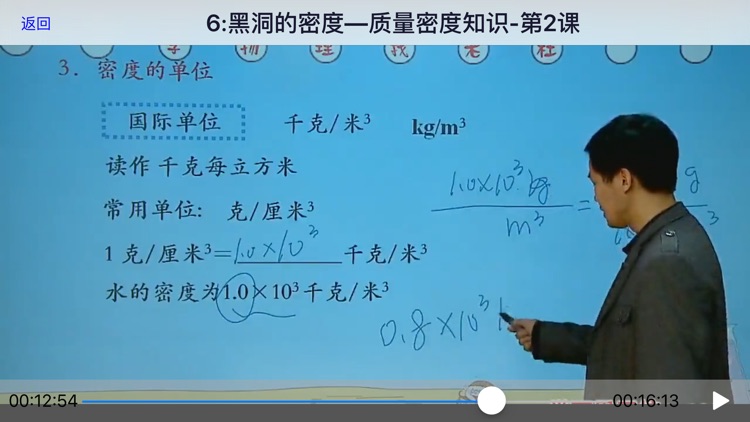 返回
6:黑洞的密度—质量密度知识-第2课
学 物 理 找 老 杜
3. 密度的单位
国际单位 千克/米³ kg/m³
读作 千克每立方米
1.0×10³ kg
m³
=
g
常用单位: 克/厘米³
1 克/厘米³=1.0×10³千克/米³
水的密度为1.0×10³千克/米³
0.8×10³ k
00:12:54
00:16:13